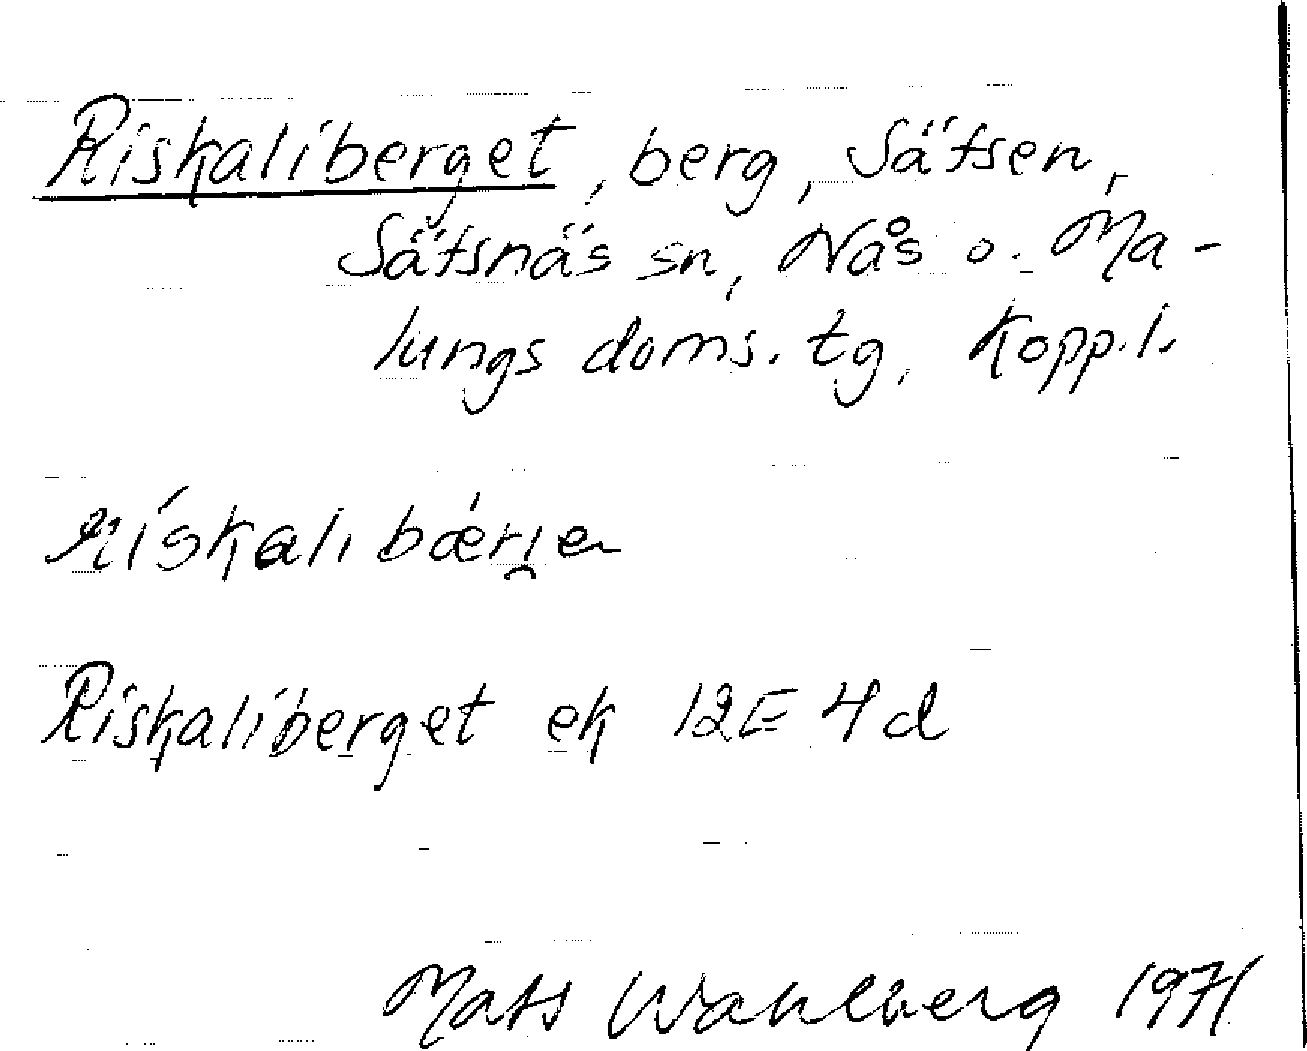 Riskaliberget, berg, Sätsen,
Sätsnäs sn, Nås o. Ma-
lungs doms. tg, Kopp.l.
Riskaliberget ek 12E 4d
Mats Wahlberg 1971